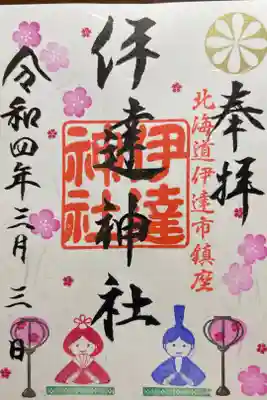 奉拝
北海道伊達市鎮座
伊達神社
伊達神社
令和四年三月三日